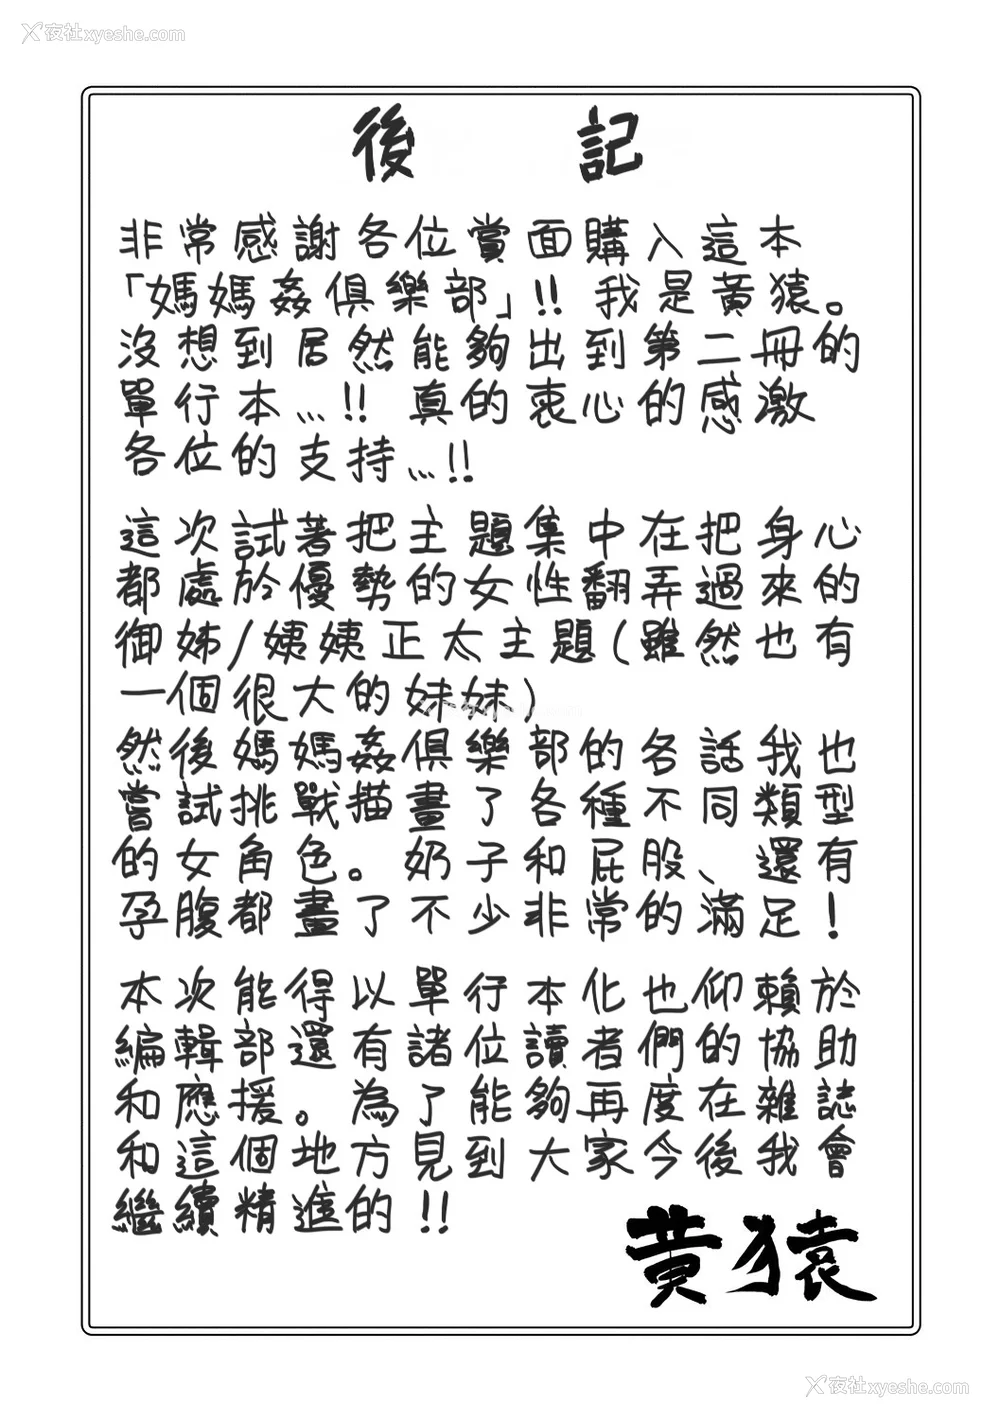 夜社xyeshe.com
後記
非常感謝各位賞面購入這本
「媽媽姦俱樂部」!! 我是黃猿。
沒想到居然能夠出到第二冊的
單行本...!! 真的衷心的感激
各位的支持...!!
這次試著把主題集中在把身心
都處於優勢的女性翻弄過來的
御姊/姨姨正太主題(雖然也有
一個很大的妹妹)
然後媽媽姦俱樂部的各話我也
嘗試挑戰描畫了各種不同類型
的女角色。奶子和屁股、還有
孕腹都畫了不少非常的滿足!
本次能得以單行本化也仰賴於
編輯部還有諸位讀者們的協助
和應援。為了能夠再度在雜誌
和這個地方見到大家今後我會
繼續精進的!!
黃猿
夜社xyeshe.com